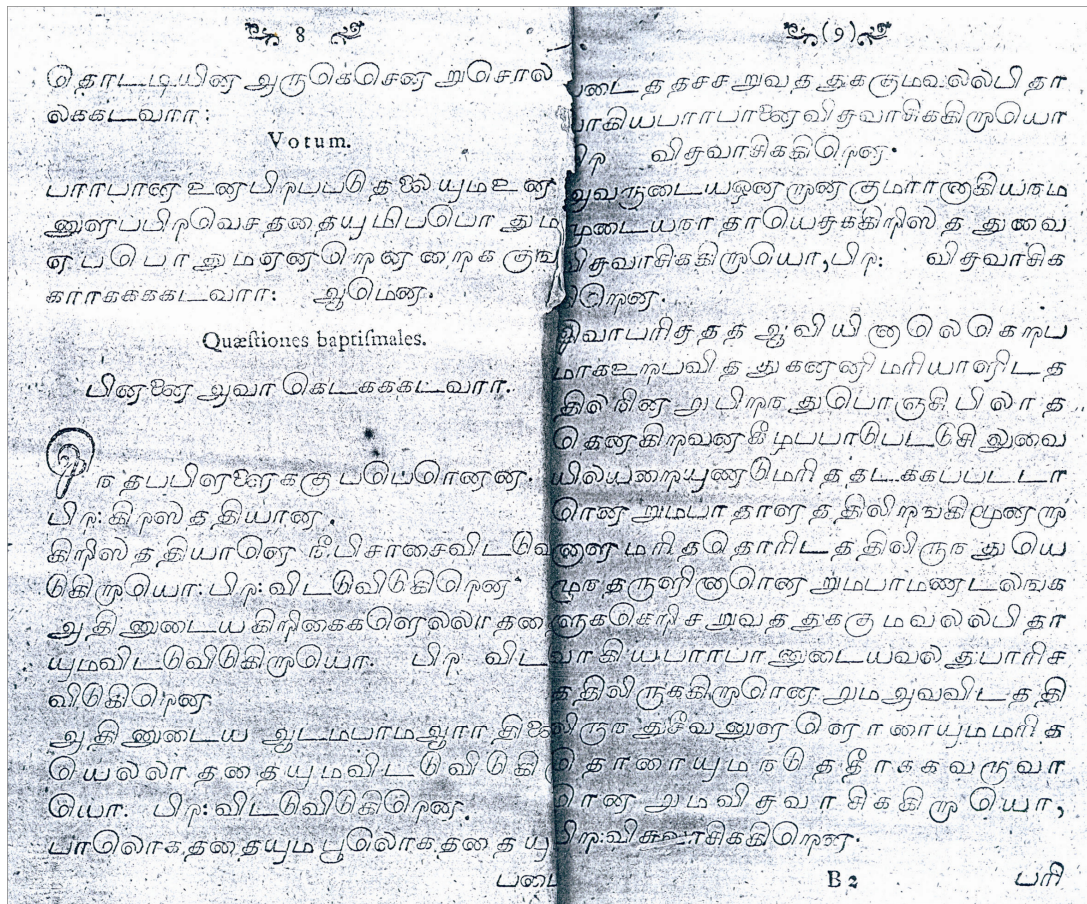 8
தொடடியின அருகெசென றுசொல
லககடவாா:
Votum.
பாாபான உனபிறபபடு தலையும உன
னுளபபிறவெச ததையு மிபபொ தும
எ பபொ துமஎனறென றைககுங
காாககககடவாா: ஆமென.
Quæſtiones baptiſmales.
பினனை அவா கெடகககடவாா.
இ ந தபபிளளைககு பபெரெனன.
பிற: கிறிஸ ததியான.
கிறிஸ ததியானெ நீ பிசாசைவிடடுவி
டுகிறாயொ: பிற: விடடுவிடுகிறென
அதினுடைய கிறிகைகளெலலா ததை
யுமவிடடுவிடுகிறாயொ. பிற விட
விடுகிறென
அதினுடைய ஆடமபாமஆா
யெலலா ததையுமவிடடுவிடுகிறா
யொ. பிற: விடடுவிடுகிறென.
பாலொக ததையுமபூலொக ததையு
படை
(9)
படை த தசசறுவ த துககுமவலலபிதா
வாகியபாாபானைவிசுவாசிககிறாயொ
பிற விசுவாசிககிறென.
அவருடையஒனறானகுமாானாகியநம
முடையநாதாயெசுககிறிஸ த துவை
விசுவாசிககிறாயொ, பிற: விசுவாசிக
கிறென.
இவாபரிசு த த ஆவியினாலெகெறப
மாகஉறபவி த துகனனிமரியாளிட த
திலநினறுபிறந துபொஞசிபிலா த
தெனகிறவனகீழபபாடுபடடுசிலுவை
யிலயறையுணடுமரி த தடககபபடடா
ரெனறுமபாதாள த திலிறஙகிமூனறா
னாளமரி ததொரிட த திலிருந துயெ
ழுநதருளினாரெனறுமபாமணடலஙக
ளுககெறிசறுவ த துககுமவலலபிதா
வாகியபாாபானுடையவல துபாரிச
த திலிருககிறாரெனறும அவவிட த தி
லிருந துசீவனுளளொாாயுமமரி த
தொாாயுமநடு ததீாககவருவா
ரெனறுமவிசுவாசிககிறாயொ,
பிற: விசுவாசிககிறென.
B 2
பரி